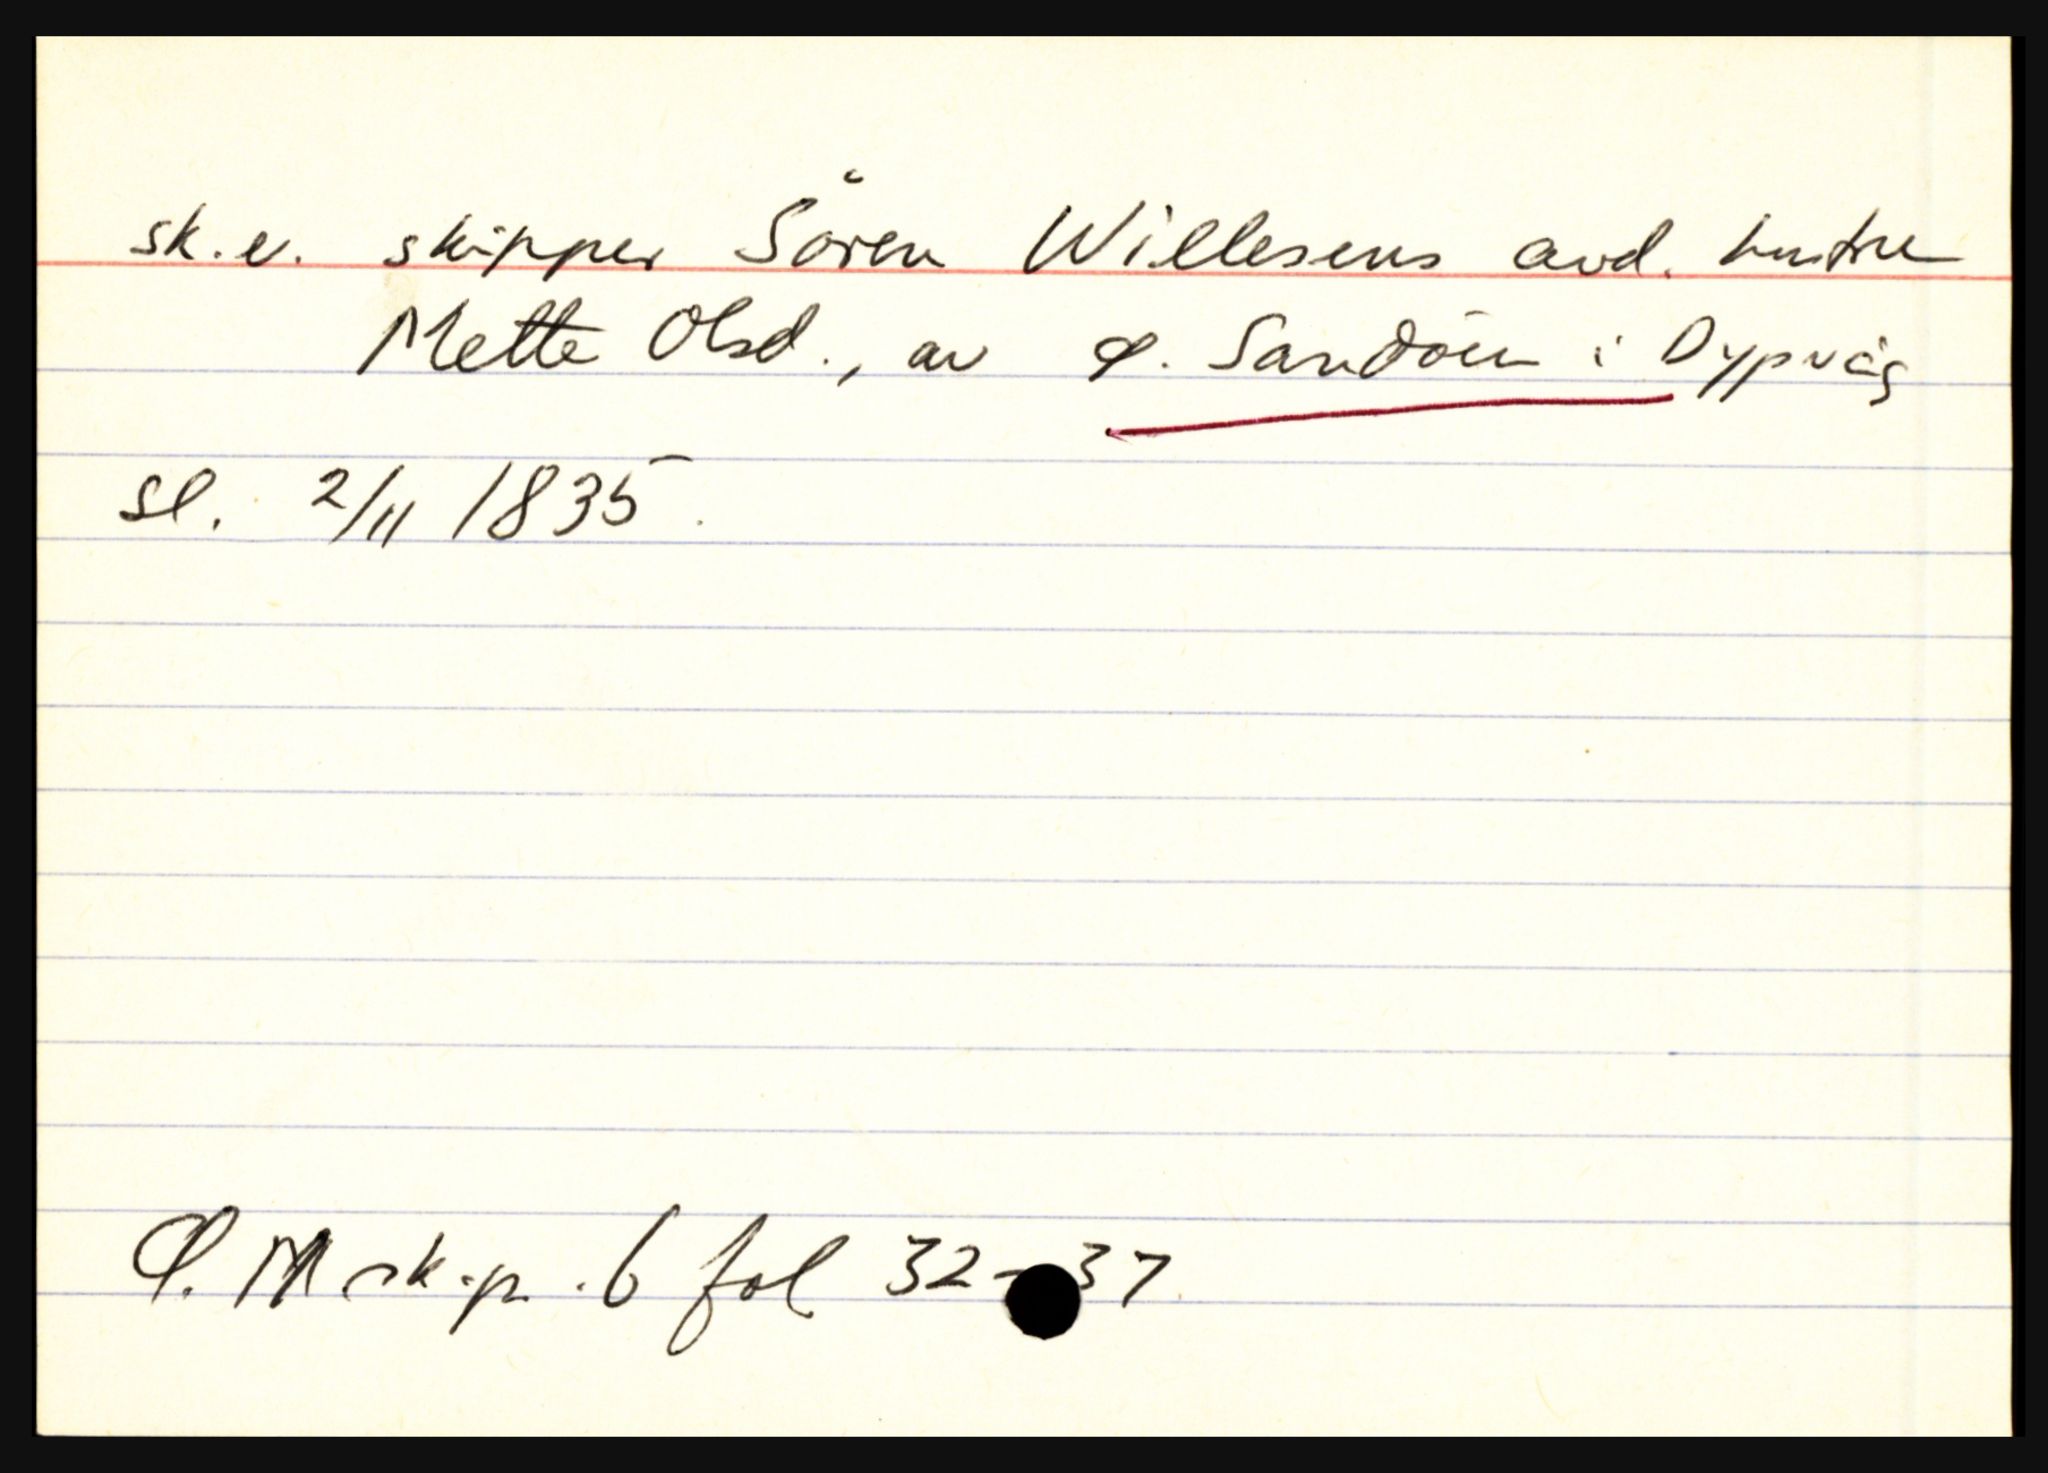 sk. e. skipper Sören Willesens avd. hustru
Mette Olsd., av Ø. Sandöen i Dypvåg
sl. 2/11 1835.
Ø. M sk.p. 6 fol 32-37